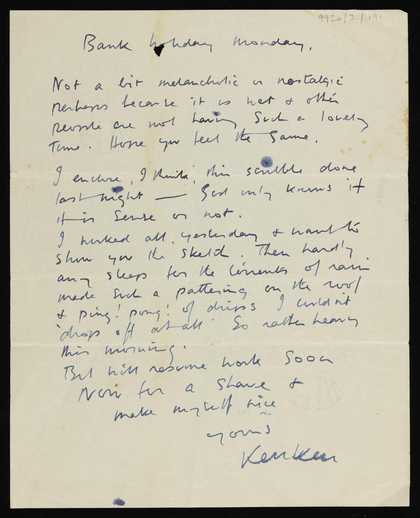 9920/2/191
Bank holiday Monday,
Not a bit melancholic or nostalgic
perhaps because it is wet & other
people are not having such a lovely
time. Hope you feel the same.
I enclose, I think, this scribble done
last night — God only knows if
it is sense or not.
I worked all yesterday & want to
show you the sketch. Then hardly
any sleep for the torrents of rain
made such a pattering on the roof
& ping! pong! of drips I couldn't
'drop off at all' So rather heavy
this morning.
But will resume work soon
Now for a shave &
make myself nice
yours
KenKen